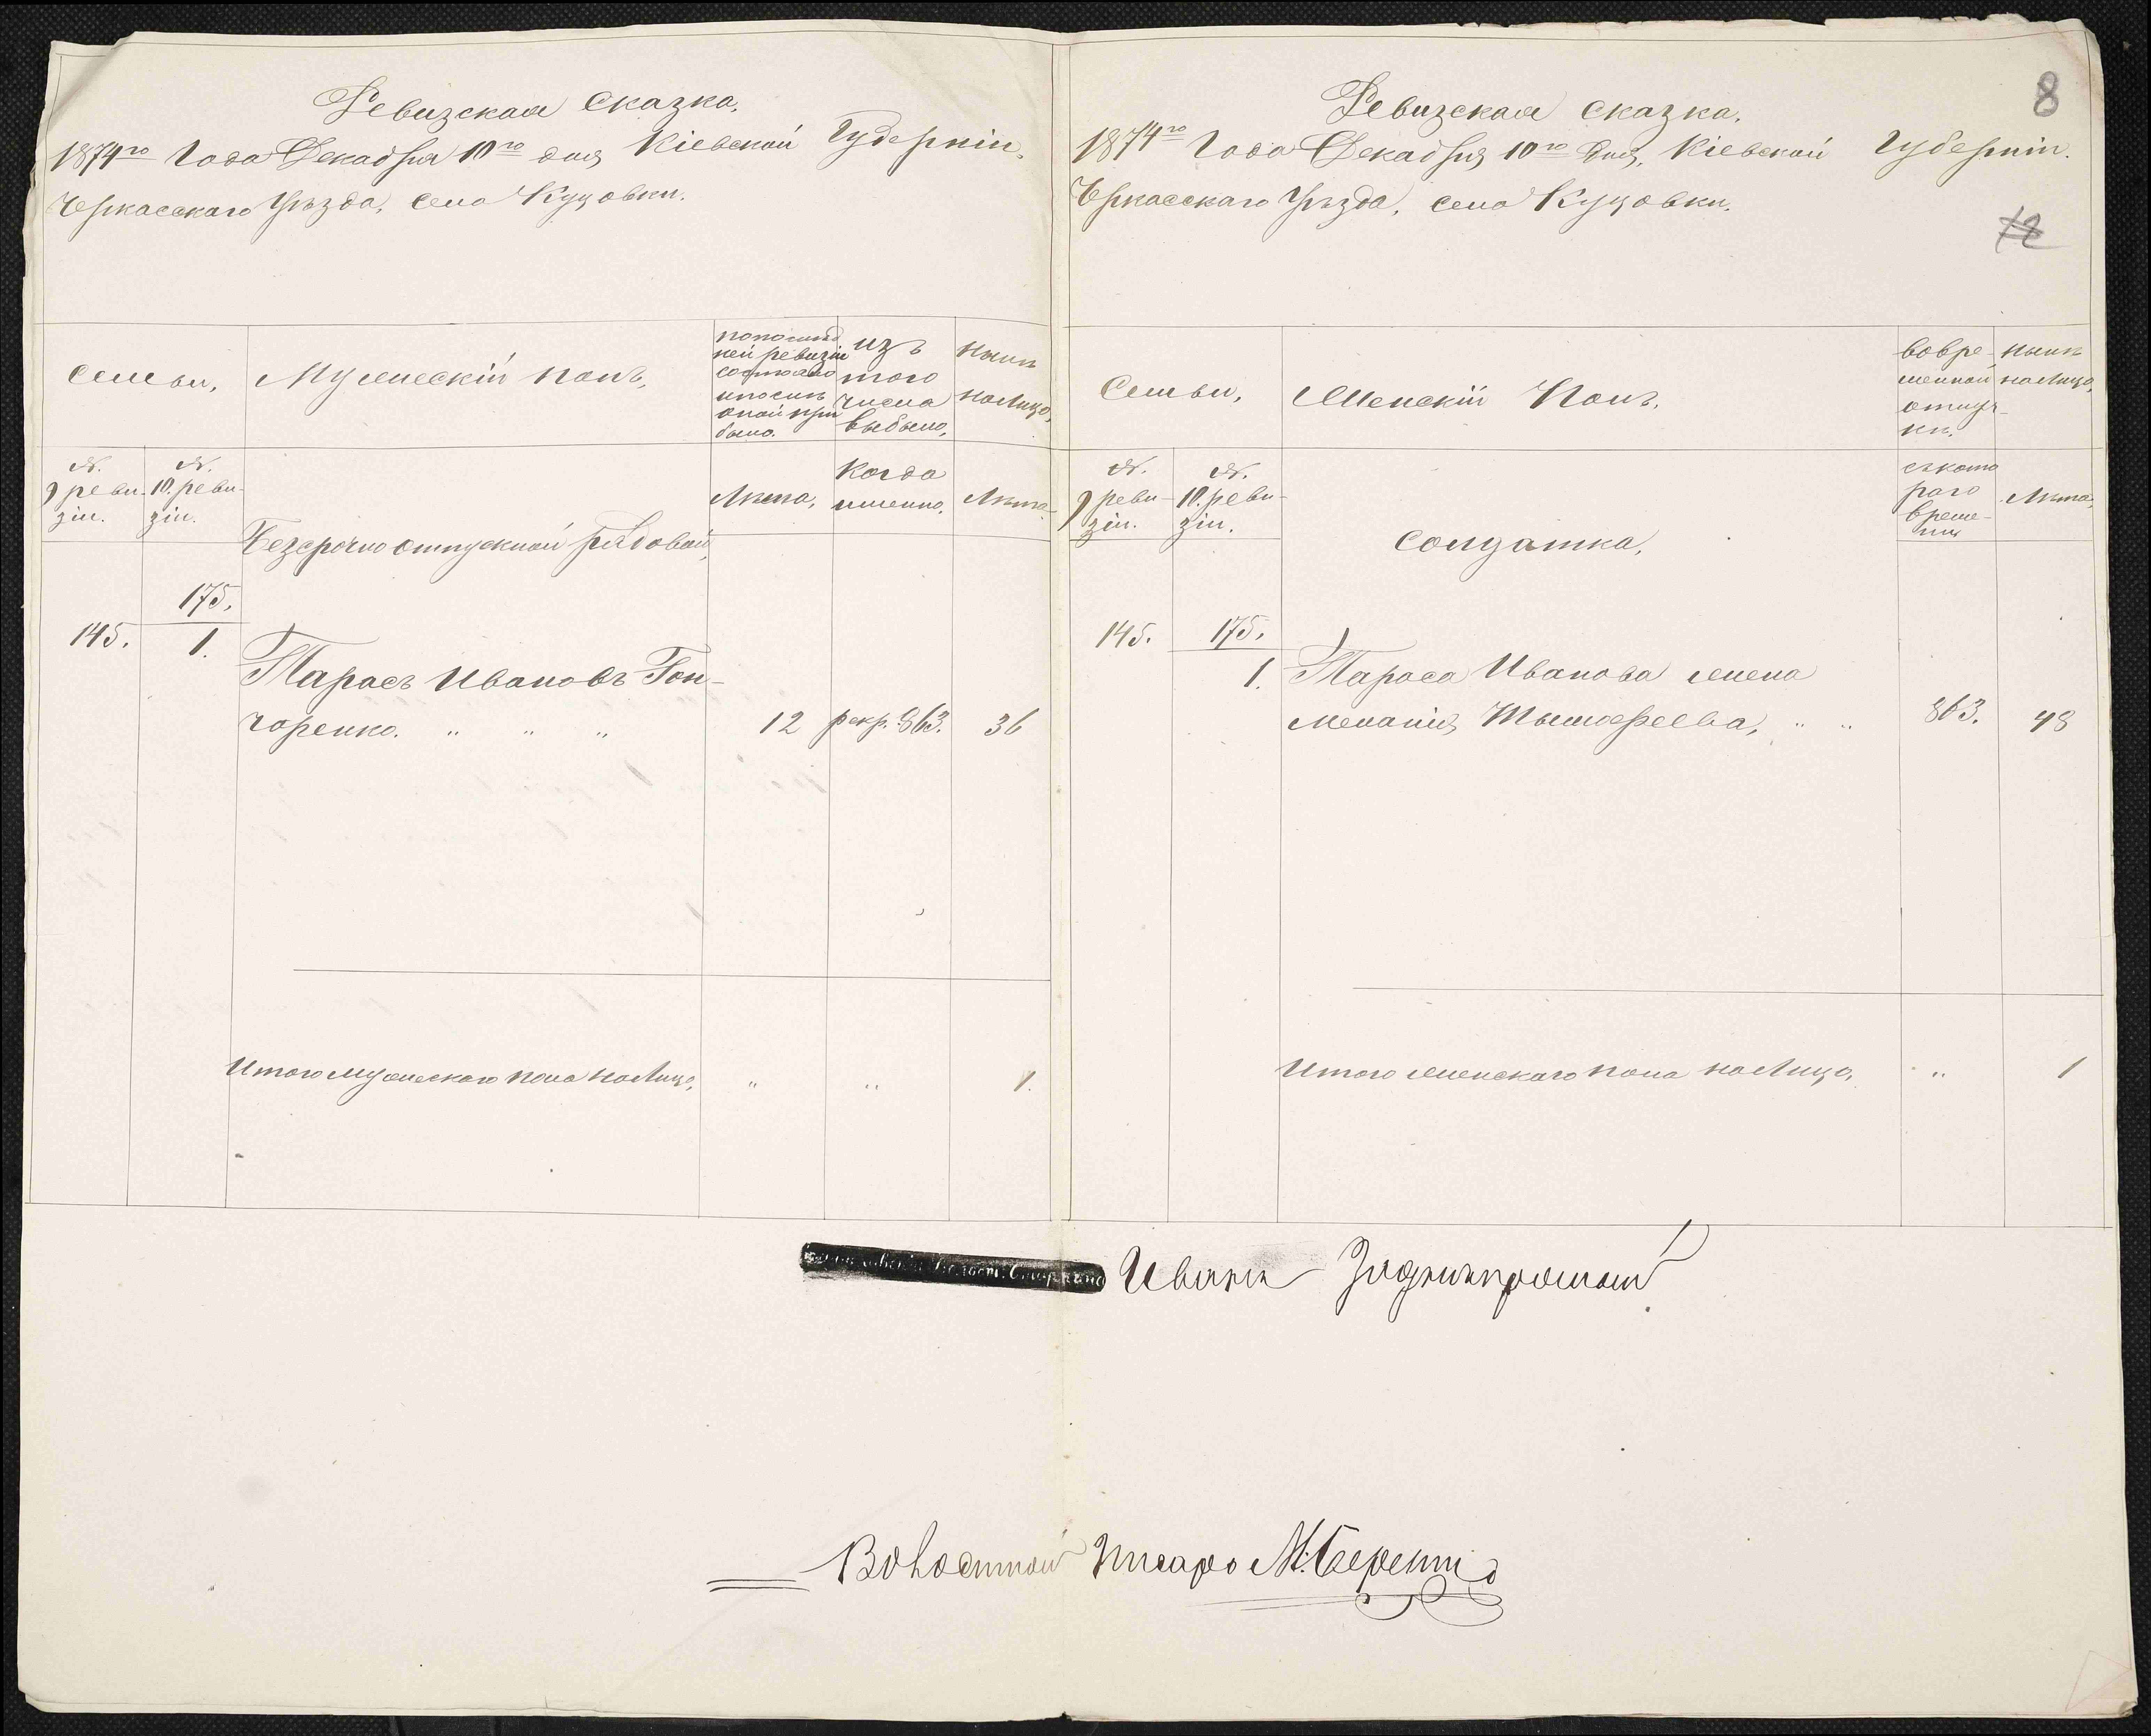 Ревизская сказка.
1874го Года Декабря 10го дня, Кіевской Губерніи.
Черкасскаго Уѣзда, села Куцовки.
Семьи,
Мужескій полъ,
по послѣд
ней ревизіи
состояло
и послѣ
оной при
было.
изъ
того
числа
выбыло,
Нынѣ
налицо,
№.
9 реви-
зіи.
№.
10. реви-
зіи.
Лѣта,
Когда
именно,
Лѣта
Безсрочно отпускной рядовой,
175.
145.
1.
Тарасъ Ивановъ Гон-
чаренко. " " "
12
рекр. 863.
36
Итого мужескаго пола налицо,
"
"
1.
8
Ревизская сказка.
1874го Года Декабря 10го дня, Кіевской Губерніи.
Черкасскаго Уѣзда, села Куцовки.
12
Семьи,
Женскій Полъ,
во вре-
менной
отлуч-
кѣ.
Нынѣ
налицо,
№.
9 реви-
зіи.
№.
10. реви-
зіи.
съ кото
раго
време-
ни
Лѣта,
Солдатка,
145.
175.
1.
Тараса Иванова жена
Меланія, Тымофеева, " "
863.
48
Итого женскаго пола налицо,
"
1
Иванъ
Волостной Писарь М.